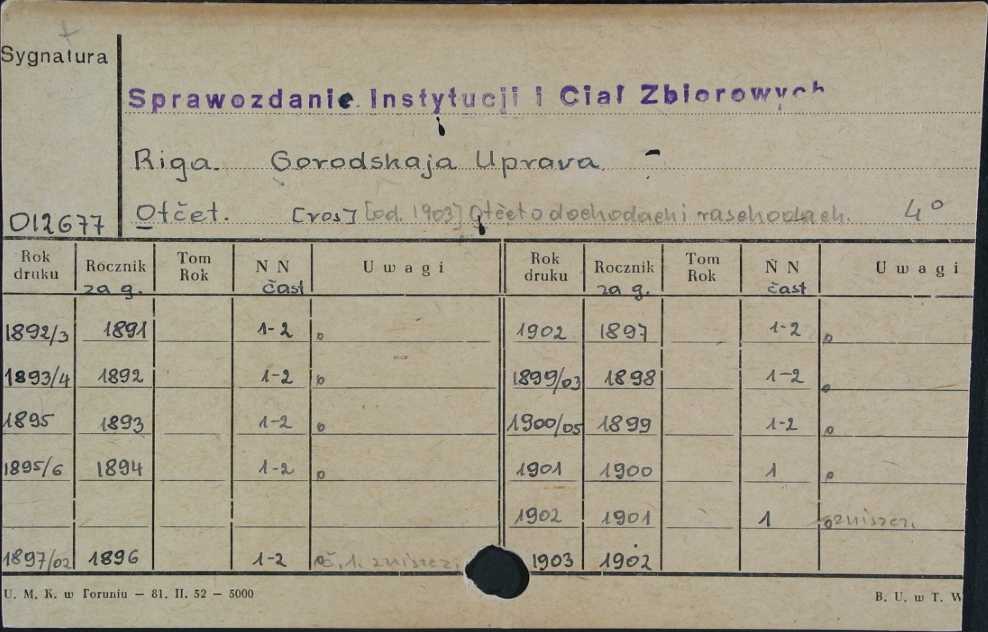 Sygnatura
Sprawozdanie Instytucji i Ciał Zbiorowych
Riga. Gorodskaja Uprava -
012677 Otčet. [ros] [od. 1903] Otčet o dochodach i raschodach. 4°
Rok druku Rocznik za g. Tom Rok N N čast Uwagi Rok druku Rocznik za g. Tom Rok N N čast Uwagi
1892/3 1891 1-2 1902 1897 1-2
1893/4 1892 1-2 1899/03 1898 1-2
1895 1893 1-2 1900/05 1899 1-2
1895/6 1894 1-2 1901 1900 1
1902 1901 1 zniszcz.
1897/02 1896 1-2 č. 1. zniszcz. 1903 1902
U. M. K. w Toruniu — 81. II. 52 — 5000 B. U. w T. W